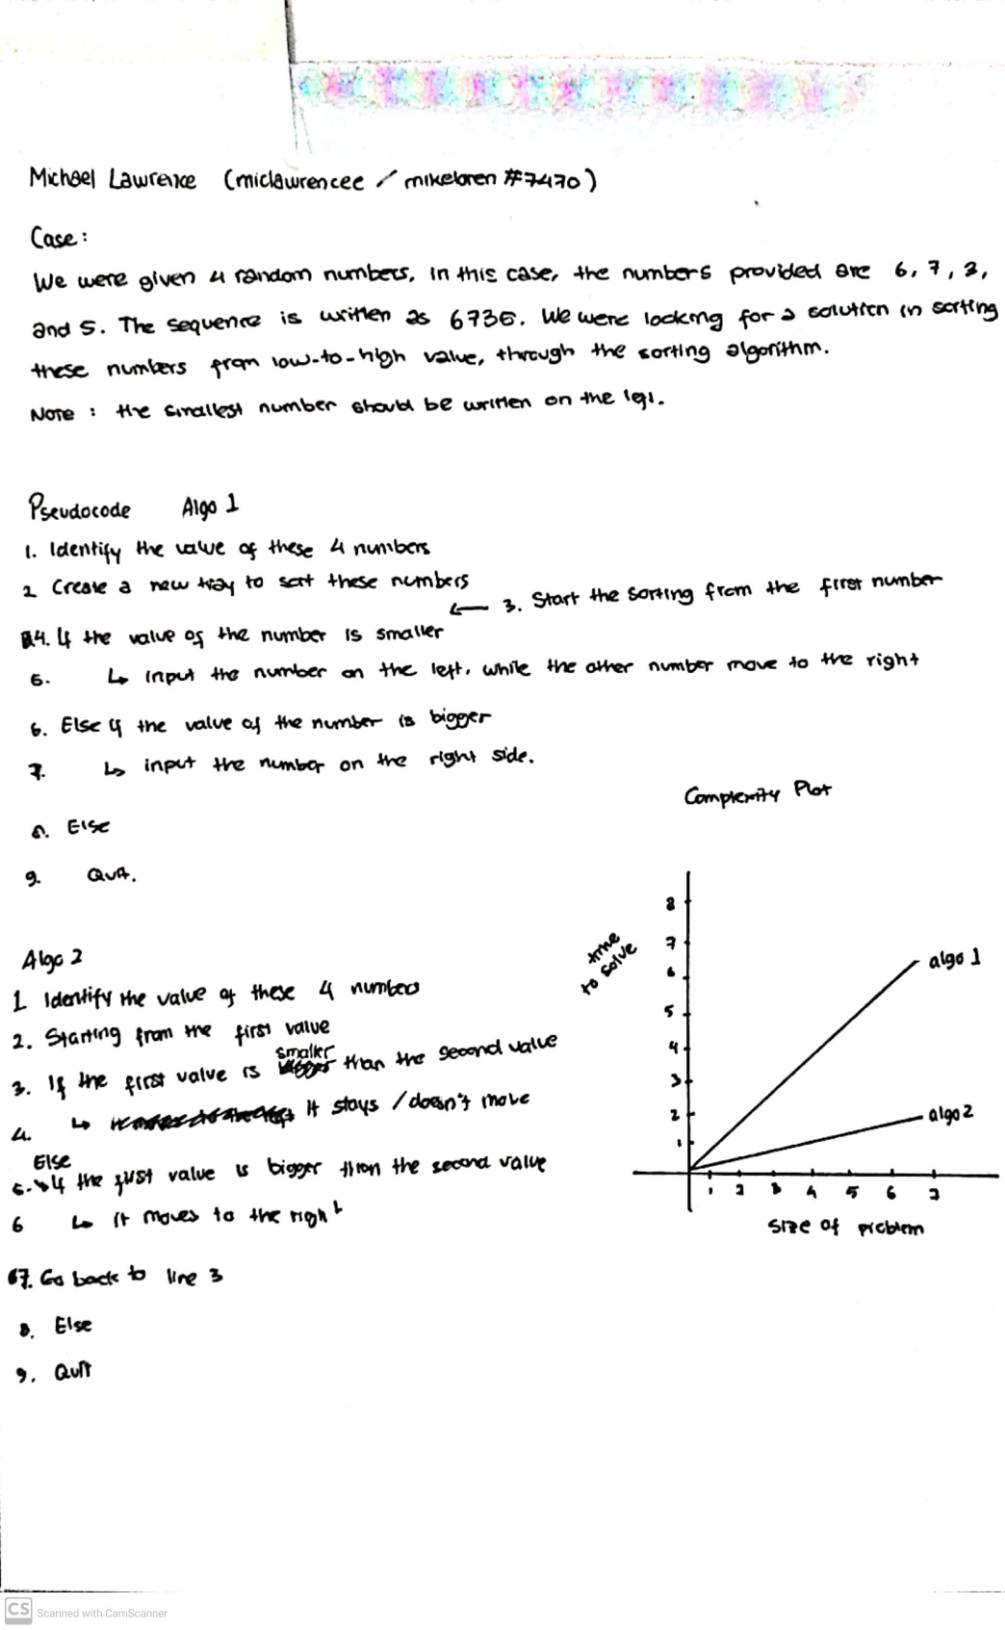 Michael Lawrence (miclawrencee / mikeloren #7470)
Case:
We were given 4 random numbers, in this case, the numbers provided are 6, 7, 3,
and 5. The sequence is written as 6735. We were looking for a solution in sorting
these numbers from low-to-high value, through the sorting algorithm.
Note : the smallest number should be written on the
Pseudocode Algo 1
1. Identify the value of these 4 numbers
2 Create a new to sort these numbers
← 3. Start the sorting from the first number
4. If the value of the number is smaller
5. ↳ input the number on the left, while the other number move to the right
6. Else if the value of the number is bigger
7. ↳ input the number on the right side.
8. Else
9. Quit.
Algo 2
1 Identify the value of these 4 numbers
2. Starting from the first value
3. If the first value is smaller than the second value
4. ↳ It stays / doesn't move
5. Else if the first value is bigger than the second value
6 ↳ it moves to the right
7. Go back to line 3
8. Else
9. Quit
Complexity Plot
time
to solve
8
7
6
5
4
3
2
1
algo 1
algo 2
1 2 3 4 5 6 7
size of problem
CS Scanned with CamScanner